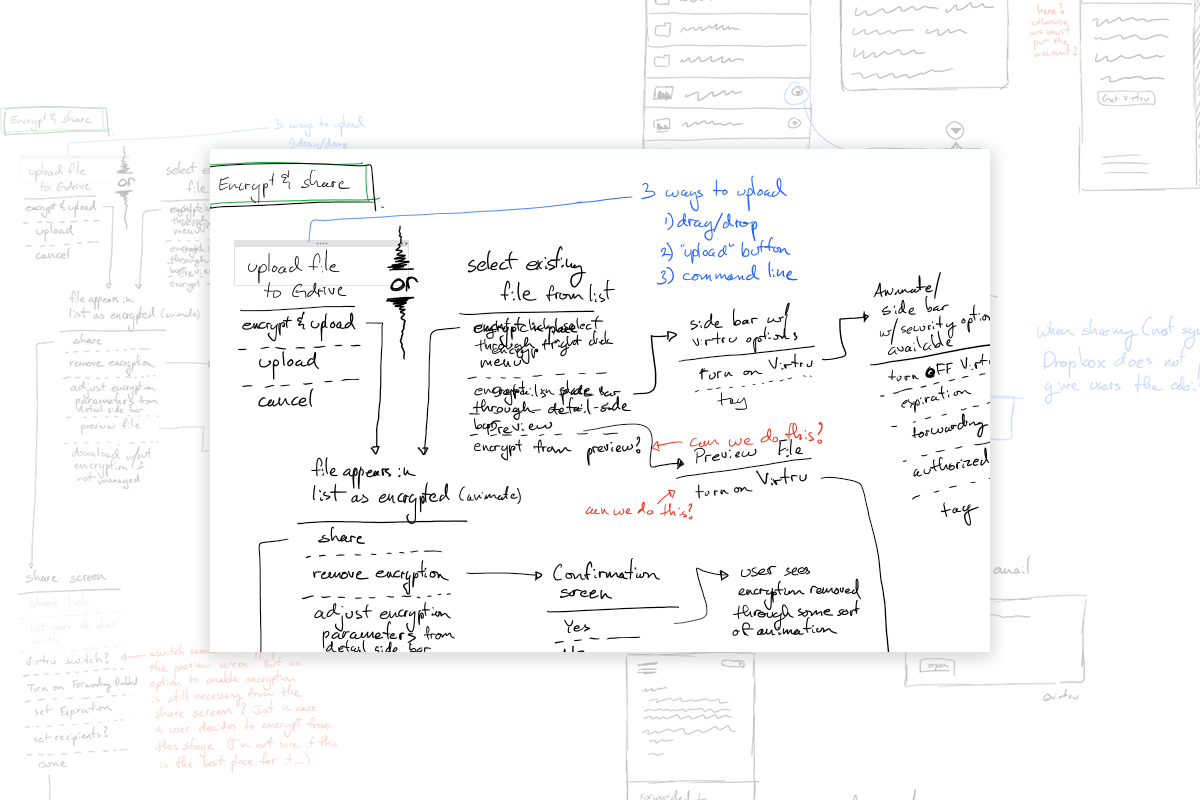 Encrypt & share
3 ways to upload
1) drag/drop
2) "upload" button
3) command line
upload file
to Gdrive
encrypt & upload
upload
cancel
or
select existing
file from list
menu
through detail-side
bar
preview
encrypt from preview?
side bar w/
virtru options
turn on Virtru
tag
Animate/
side bar
w/security option
available
turn OFF Virtr
expiration
forwarding
authorized
tag
can we do this?
Preview File
turn on Virtru
can we do this?
file appears in
list as encrypted (animate)
share
remove encryption
adjust encryption
parameters from
detail side bar
Confirmation
screen
Yes
user sees
encryption removed
through some sort
of animation
Encrypt & share
3 ways to upload
1) drag/drop
upload file
to Gdrive
encrypt & upload
upload
cancel
or
select
file
file appears in
list as encrypted (animate)
share
remove encryption
adjust encryption
parameters from
detail side bar
preview file
download w/out
encryption if
not managed
share screen
share link
Virtru switch?
Turn on Forwarding
set Expiration
set recipients?
name
the preview screen. But an
option to enable encryption
is still necessary from the
share screen? Just in case
a user decides to encrypt from
this stage. (I'm not sure if this
is the best place for it...)
here?
otherwise
we must
put the
account?
Get Virtru
When sharing (not
Dropbox does not
give users the
email
open
@virtru
Forwarded to